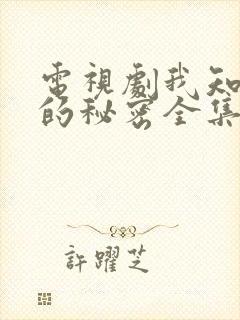 電視劇我知
的秘密全集
許躍芝